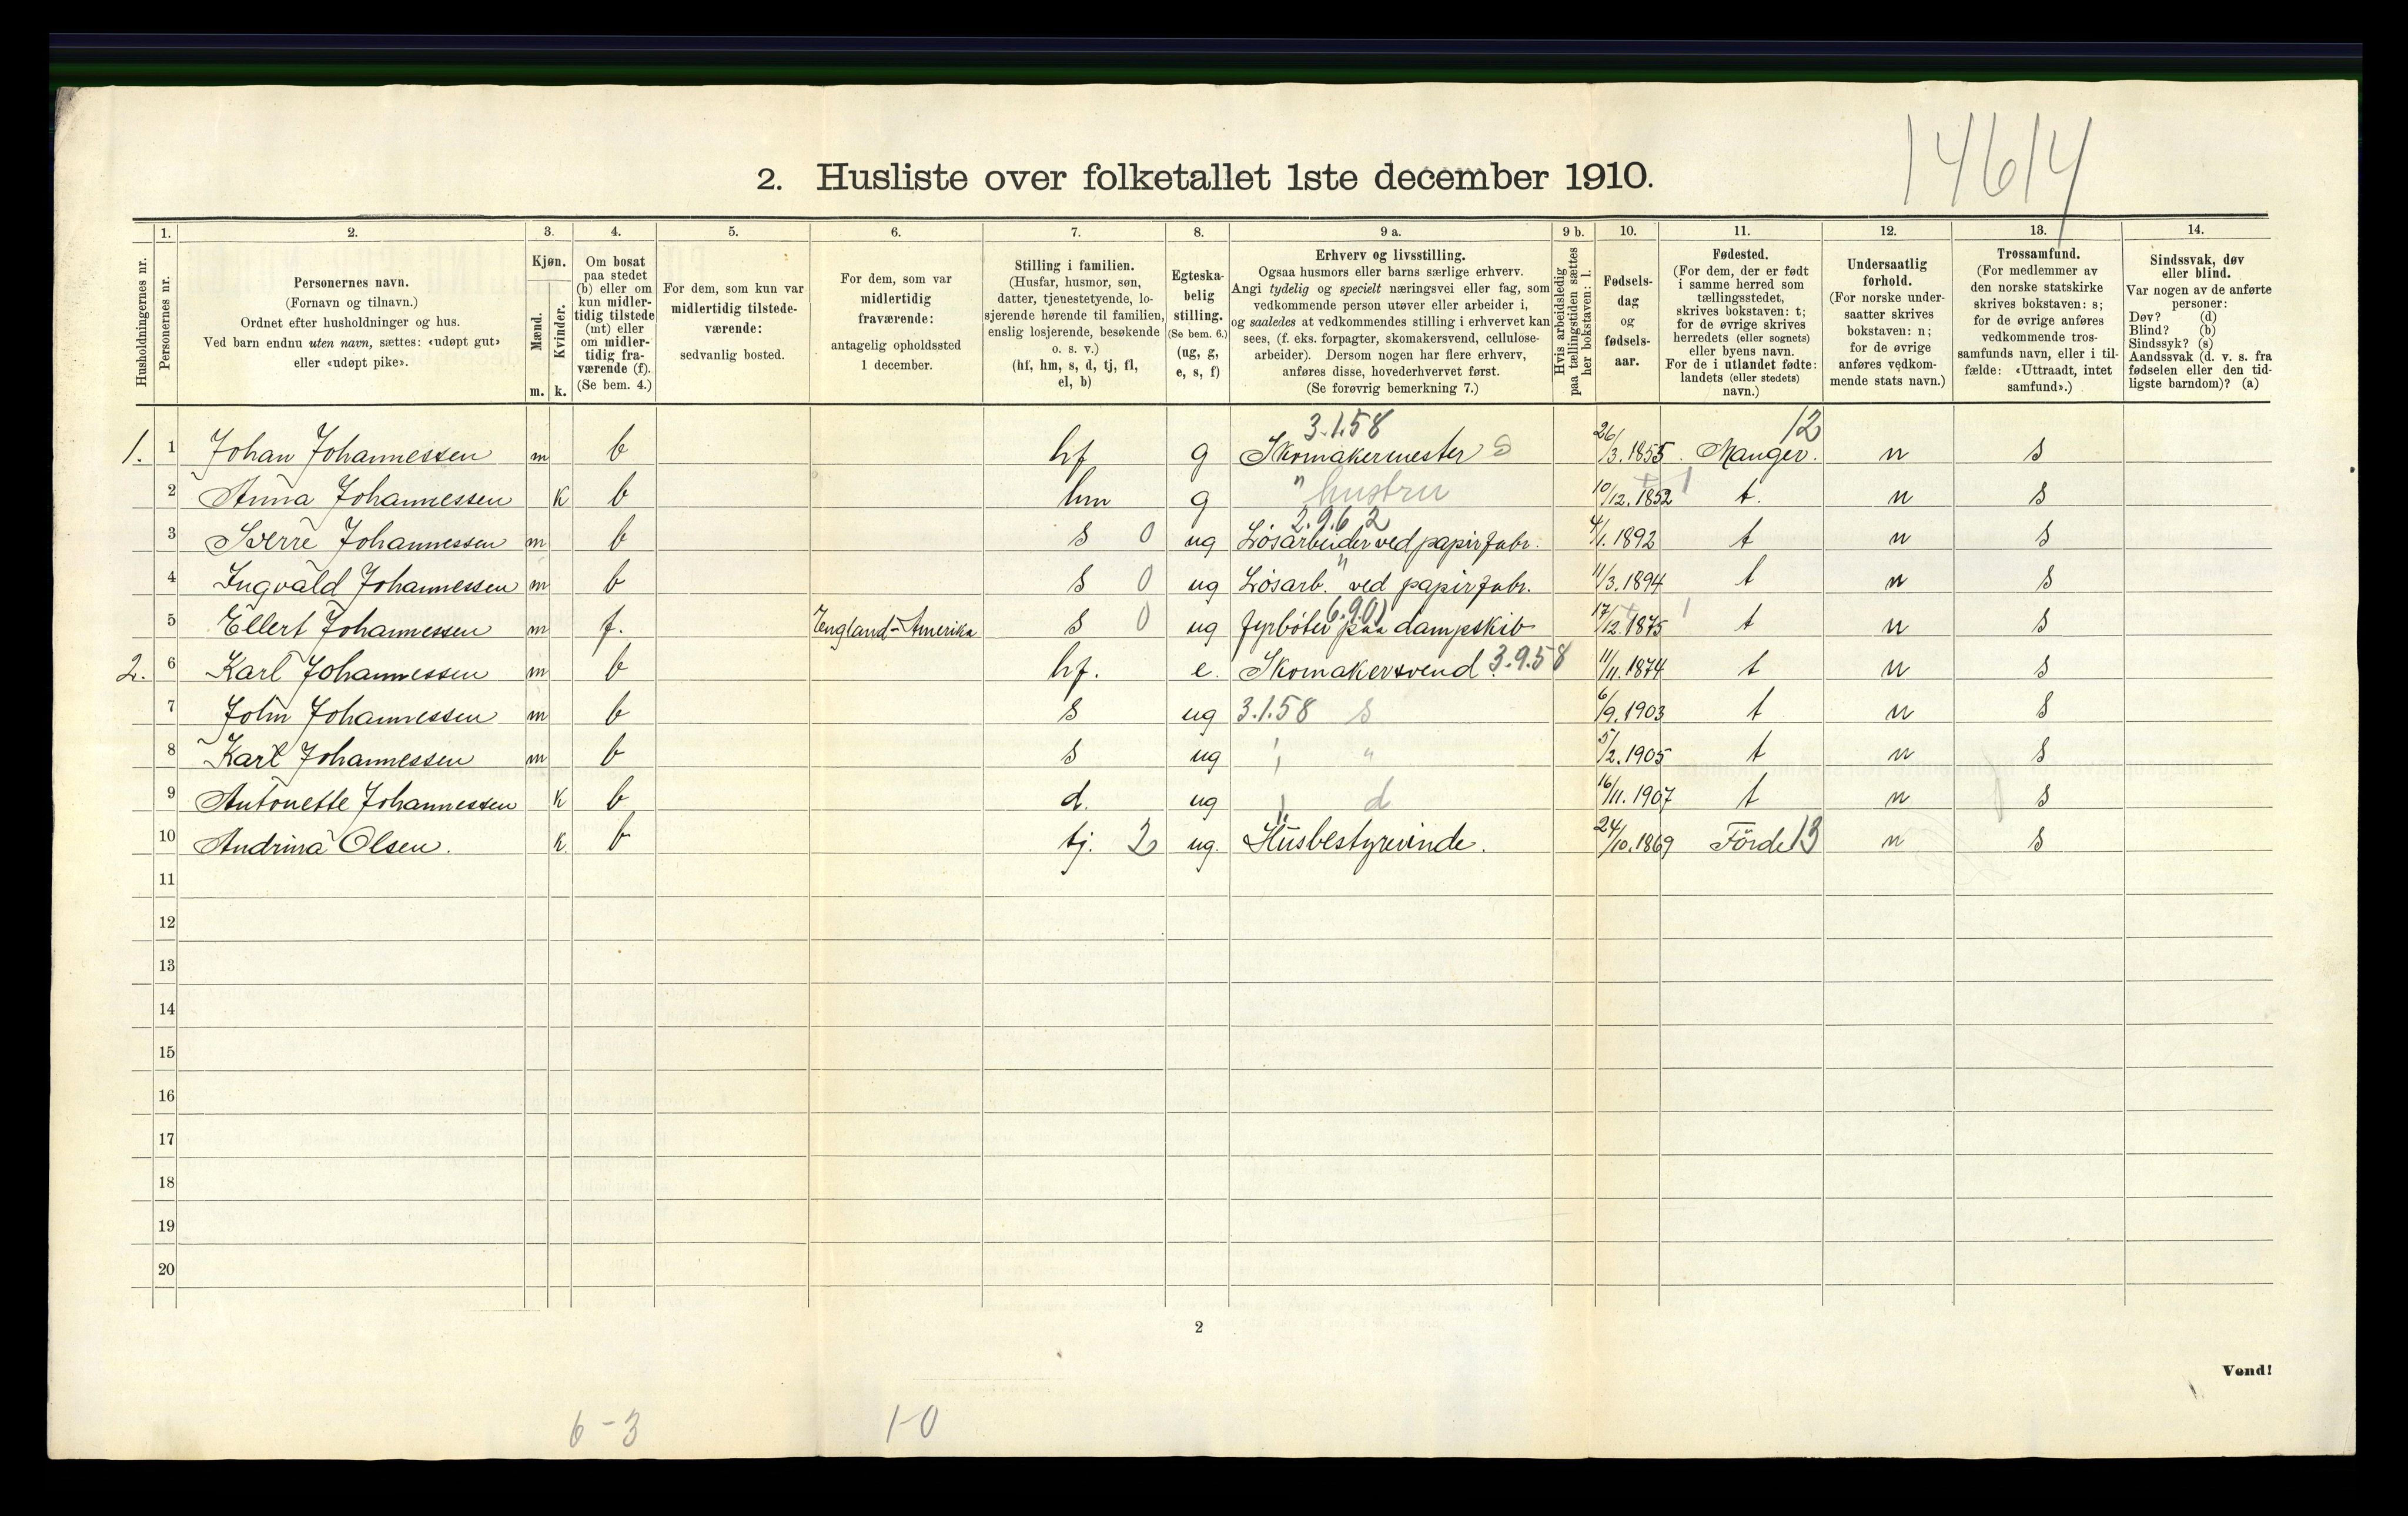 14614
2. Husliste over folketallet 1ste december 1910.
Husholdningernes nr.
1.
Personernes nr.
2.
Personernes navn.
(Fornavn og tilnavn.)
Ordnet efter husholdninger og hus.
Ved barn endnu uten navn, sættes: «udøpt gut»
eller «udøpt pike».
3.
Kjøn.
Mænd.
Kvinder.
m. k.
4.
Om bosat
paa stedet
(b) eller om
kun midler-
tidig tilstede
(mt) eller
om midler-
tidig fra-
værende (f).
(Se bem. 4.)
5.
For dem, som kun var
midlertidig tilstede-
værende:
sedvanlig bosted.
6.
For dem, som var
midlertidig
fraværende:
antagelig opholdssted
1 december.
7.
Stilling i familien.
(Husfar, husmor, søn,
datter, tjenestetyende, lo-
sjerende hørende til familien,
enslig losjerende, besøkende
o. s. v.)
(hf, hm, s, d, tj, fl,
el, b)
8.
Egteska-
belig
stilling.
(Se bem. 6.)
(ug, g,
e, s, f)
9 a.
Erhverv og livsstilling.
Ogsaa husmors eller barns særlige erhverv.
Angi tydelig og specielt næringsvei eller fag, som
vedkommende person utøver eller arbeider i,
og saaledes at vedkommendes stilling i erhvervet kan
sees, (f. eks. forpagter, skomakersvend, cellulose-
arbeider). Dersom nogen har flere erhverv,
anføres disse, hovederhvervet først.
(Se forøvrig bemerkning 7.)
9 b.
Hvis arbeidsledig
paa tællingstiden sættes
her bokstaven: l.
10.
Fødsels-
dag
og
fødsels-
aar.
11.
Fødested.
(For dem, der er født
i samme herred som
tællingsstedet,
skrives bokstaven: t;
for de øvrige skrives
herredets (eller sognets)
eller byens navn.
For de i utlandet fødte:
landets (eller stedets)
navn.)
12.
Undersaatlig
forhold.
(For norske under-
saatter skrives
bokstaven: n;
for de øvrige
anføres vedkom-
mende stats navn.)
13.
Trossamfund.
(For medlemmer av
den norske statskirke
skrives bokstaven: s;
for de øvrige anføres
vedkommende tros-
samfunds navn, eller i til-
fælde: «Uttraadt, intet
samfund».)
14.
Sindssvak, døv
eller blind.
Var nogen av de anførte
personer:
Døv? (d)
Blind? (b)
Sindssyk? (s)
Aandssvak (d. v. s. fra
fødselen eller den tid-
ligste barndom)? (a)
3.1.58 12
1. 1 Johan Johannessen m b hf g Skomakermester S 26/3.1855. Manger. n s
2 Anna Johannessen K b hm g " hustru 10/12.1852 t. n s
2.9.6 2
3 Sverre Johannessen m b s 0 ug Løsarbeider ved papirfabr. 4/1.1892 t n s
4 Ingvald Johannessen m b s 0 ug Løsarb. " ved papirfabr. 11/3.1894 t n s
6.9.01
5 Ellert Johannessen m f. England-Amerika s 0 ug fyrbøter paa dampskib 17/12.1875 t n s
2. 6 Karl Johannessen m b hf. e. Skomakersvend 3.9.58 11/11.1874 t n s
7 John Johannessen m b s ug 3.1.58 s 6/9.1903 t n s
8 Karl Johannessen m b s ug " " 5/2.1905 t n s
9 Antonette Johannessen K b d. ug " d 16/11.1907 t n s
10 Andrina Olsen. K. b tj. 2 ug. Husbestyrerinde. 24/10.1869 Förde 13 n s
11
12
13
14
15
16
17
18
19
20
2
Vend!
6-3 1-0